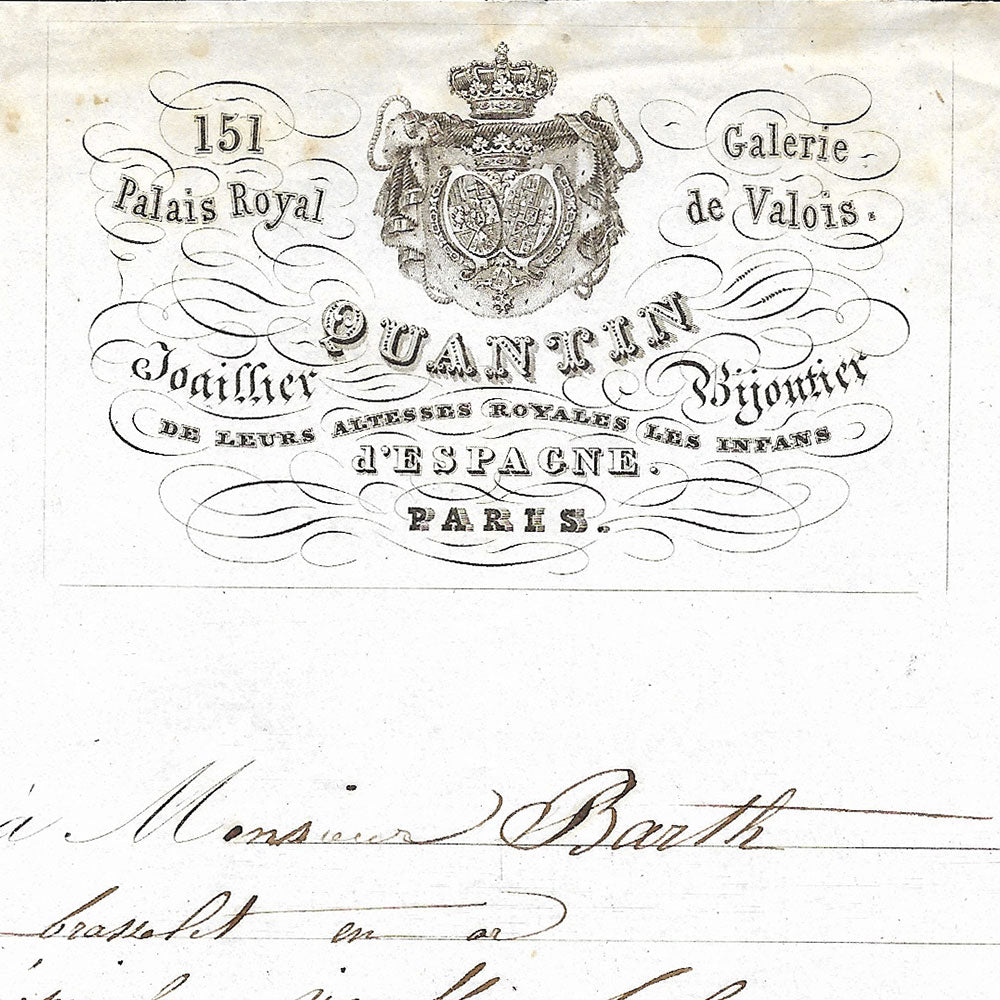 151
Palais Royal
Galerie
de Valois.
QUANTIN
Joaillier
Bijoutier
DE LEURS ALTESSES ROYALES LES INFANS
d'ESPAGNE.
PARIS.
à Monsieur Barth
brasselet en or